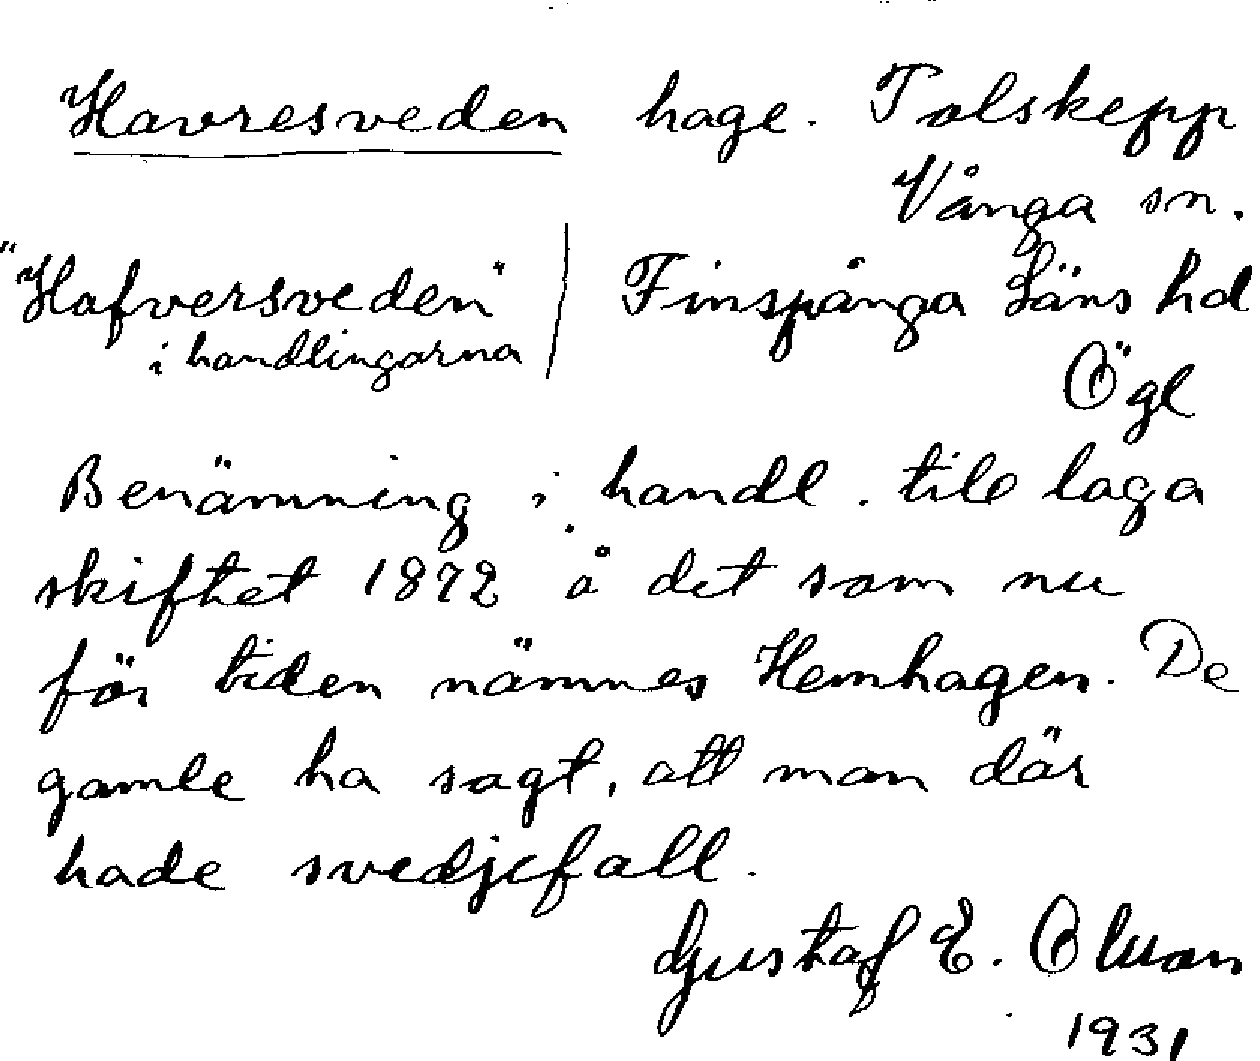 Havresveden hage. Tolskepp
Vånga sn.
"Hafversveden" | Finspånga Läns hd
i handlingarna
Ögl
Benämning i handl. till laga
skiftet 1872 å det som nu
för tiden nämnes Hemhagen. De
gamle ha sagt, att man där
hade svedjefall.
Gustaf E.
1931